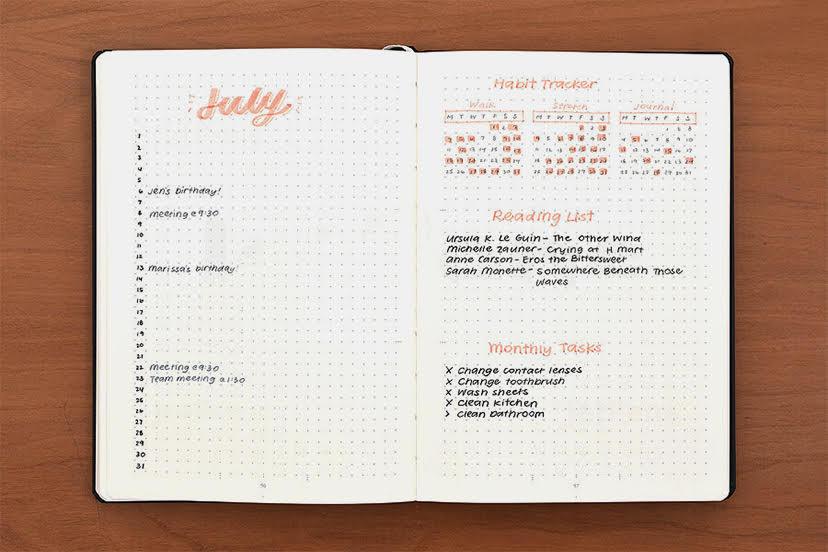 July
1
2
3
4
5
6 Jen's birthday!
7
8 meeting @ 9:30
9
10
11
12
13 marissa's birthday!
14
15
16
17
18
19
20
21
22 meeting @ 9:30
23 Team meeting @ 1:30
24
25
26
27
28
29
30
31
56
Habit Tracker
Walk Stretch Journal
M T W T F S S M T W T F S S M T W T F S S
1 2 3 1 2 3 1 2 3
4 5 6 7 8 9 10 4 5 6 7 8 9 10 4 5 6 7 8 9 10
11 12 13 14 15 16 17 11 12 13 14 15 16 17 11 12 13 14 15 16 17
18 19 20 21 22 23 24 18 19 20 21 22 23 24 18 19 20 21 22 23 24
25 26 27 28 29 30 31 25 26 27 28 29 30 31 25 26 27 28 29 30 31
Reading List
Ursula K. Le Guin - The Other Wind
Michelle Zauner - Crying at H mart
Anne Carson - Eros the Bittersweet
Sarah Monette - Somewhere Beneath Those
Waves
Monthly Tasks
X Change contact lenses
X Change toothbrush
X Wash sheets
X Clean kitchen
> Clean bathroom
57